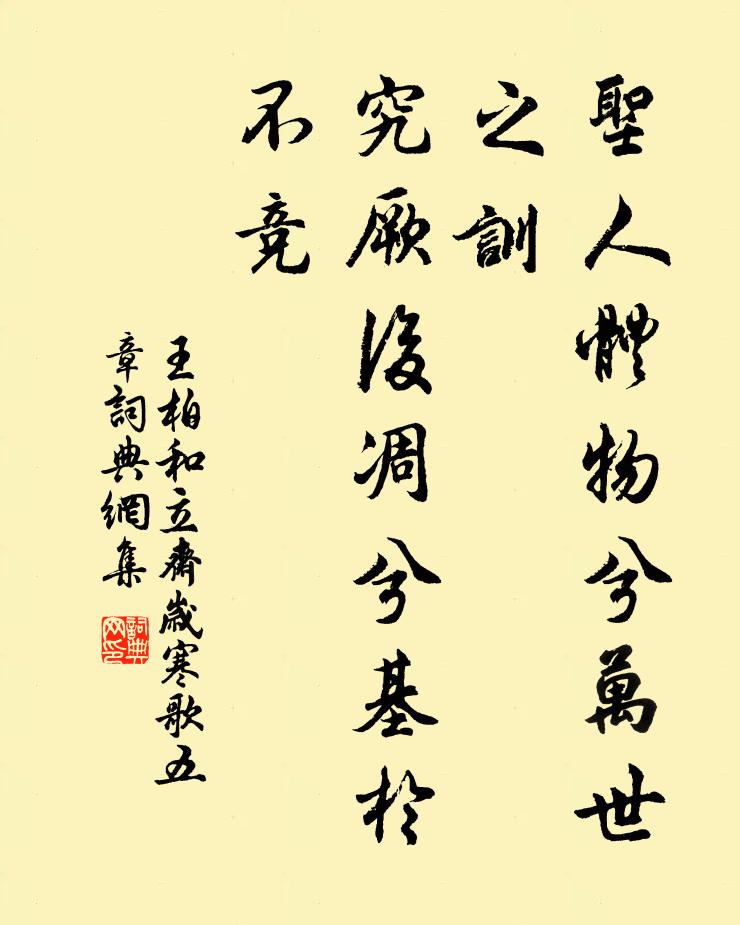 聖人體物兮萬世
之訓
究厥後凋兮基於
不竞
王柏和立齋歲寒歌五
章詞典網集
詞典
网印